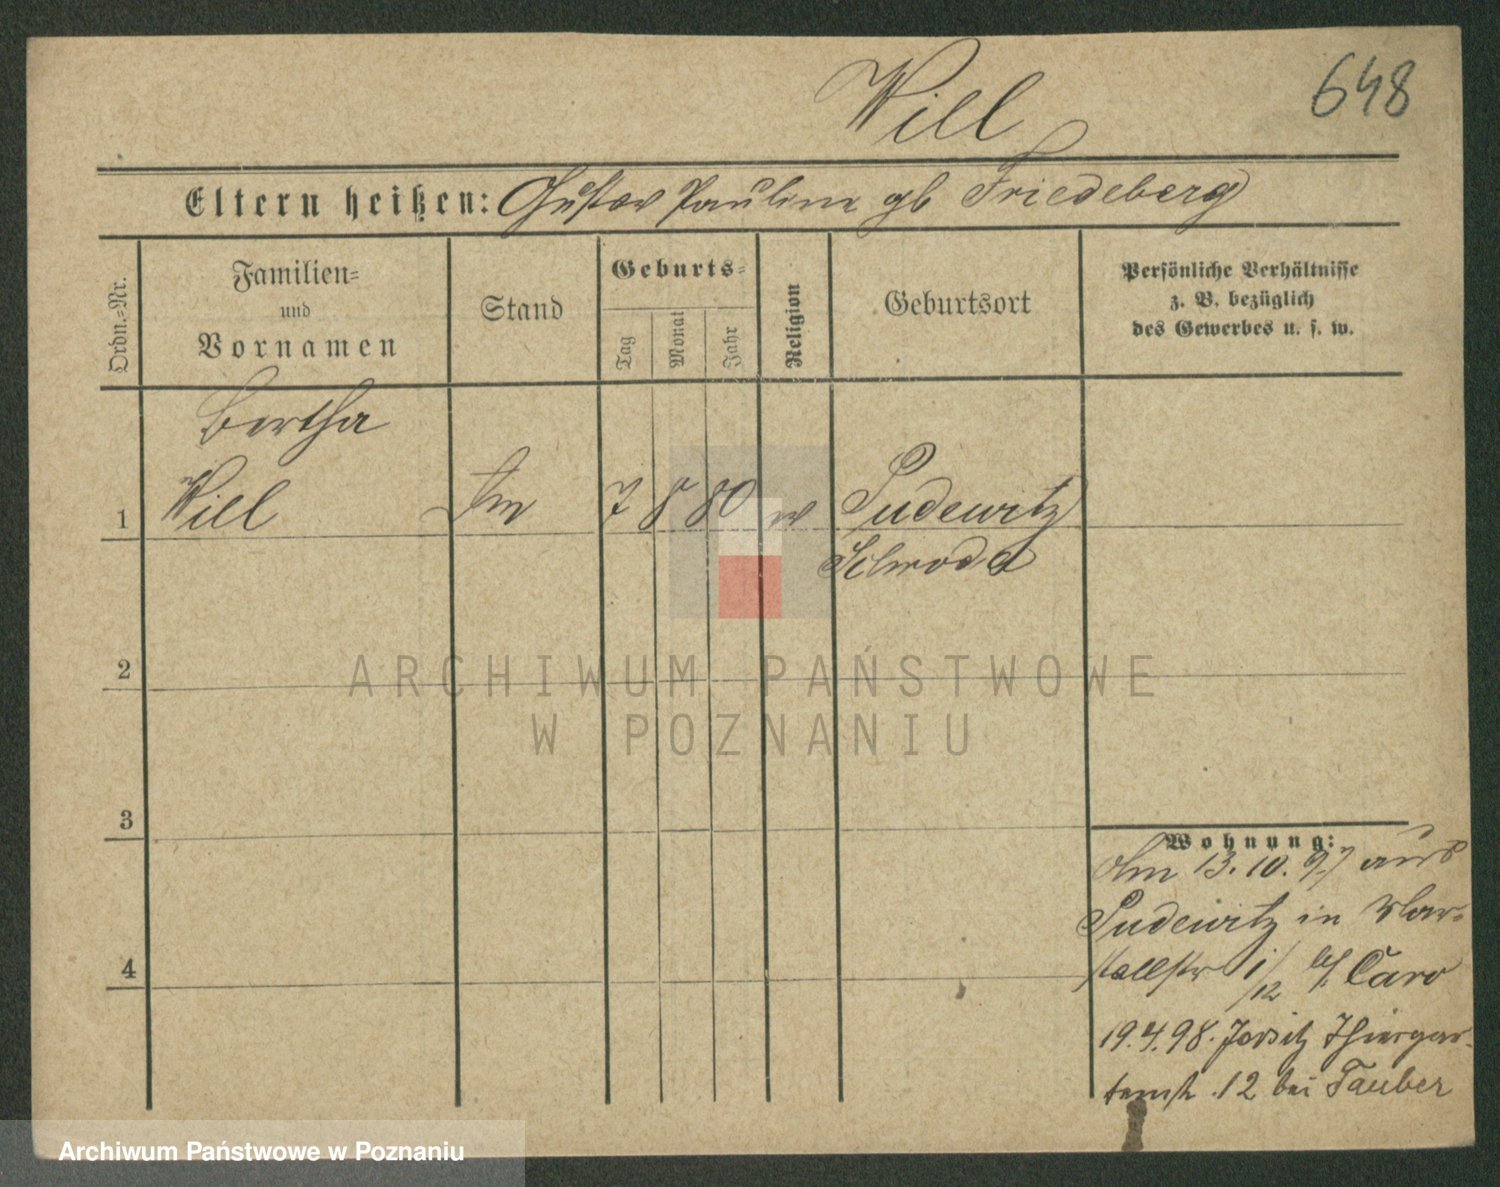 Will
648
Eltern heißen: Gustav Pauline gb Friedeberg
Ordn.=Nr.
Familien=
und
Vornamen
Stand
Geburts=
Tag
Monat
Jahr
Religion
Geburtsort
Persönliche Verhältnisse
z. B. bezüglich
des Gewerbes u. s. w.
Bertha
1 Will 7 8 80 Pudewitz
Schroda
2
3
4
Wohnung:
Am 13.10.97 aus
Pudewitz in Mar=
stallstr 1/12 b/ Caro
19.4.98. Jersitz Thiergar-
tenstr. 12 bei Tauber
ARCHIWUM PAŃSTWOWE
W POZNANIU
Archiwum Państwowe w Poznaniu